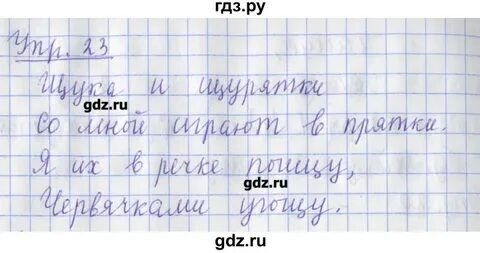 гдз.ру
Упр. 23
Щука и щурятки
gdz.ru
Со мной играют в прятки.
Я их в речке поищу,
gdz.ru
Червячками угощу.
gdz.ru